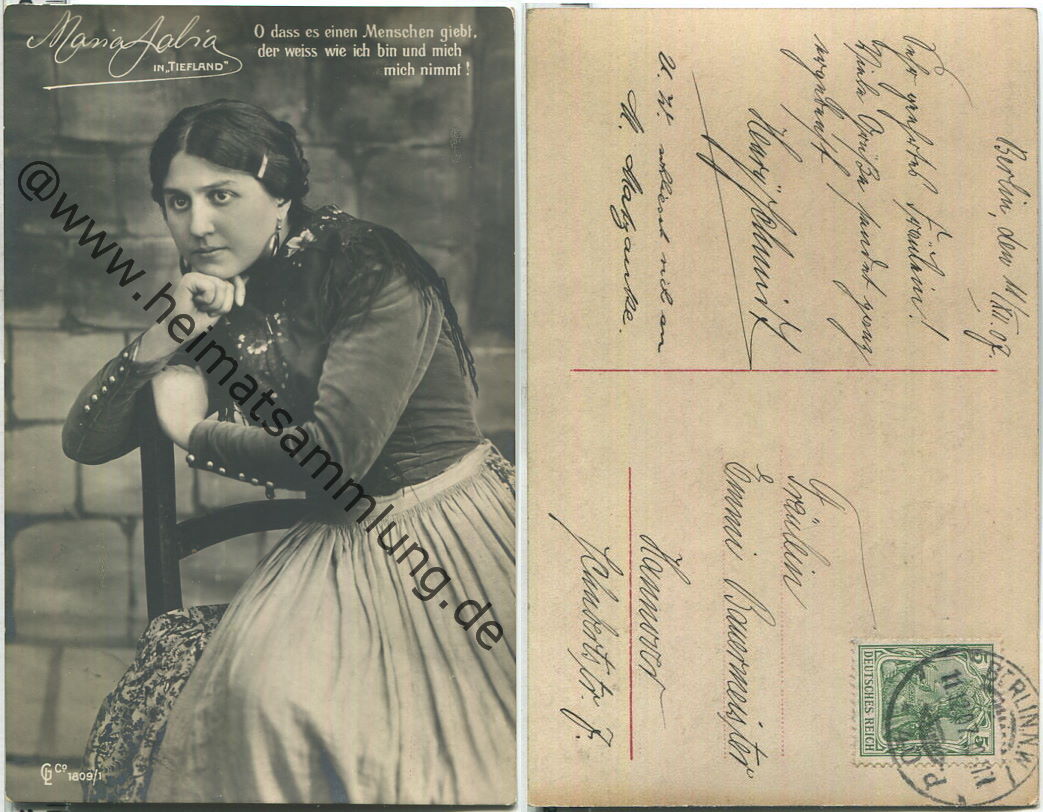 Maria Labia
IN „TIEFLAND"
O dass es einen Menschen giebt,
der weiss wie ich bin und mich
mich nimmt!
@www.heimatsammlung.de
GL Co
1809/1
Berlin, den 11.XII.07.
Sehr geehrtes Fräulein!
Viele Grüße sendet ganz
ergebenst
Harry Schmidt
U. W.
Fräulein
Emmi Bauermeister
Hannover
Schubertstr. 7.
DEUTSCHES REICH
5 5
BERLIN N.W.